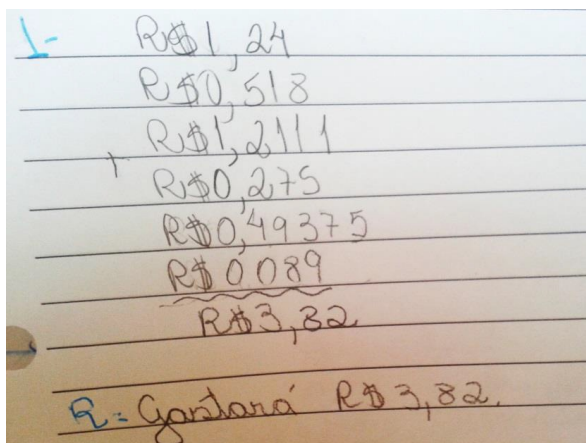 1-
R$1,24
R$0,518
R$1,2111
+
R$0,275
R$0,49375
R$0,089
R$3,82
R= Gastará R$3,82.